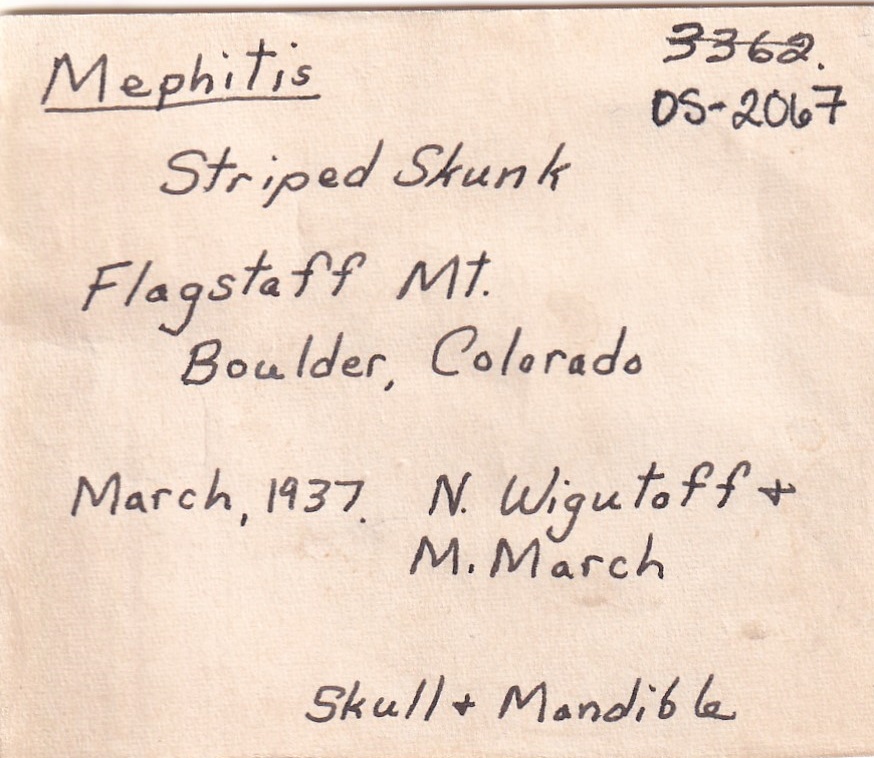 Mephitis
3362.
DS-2067
Striped Skunk
Flagstaff Mt.
Boulder, Colorado
March, 1937. N. Wigutoff +
M. March
Skull + Mandible